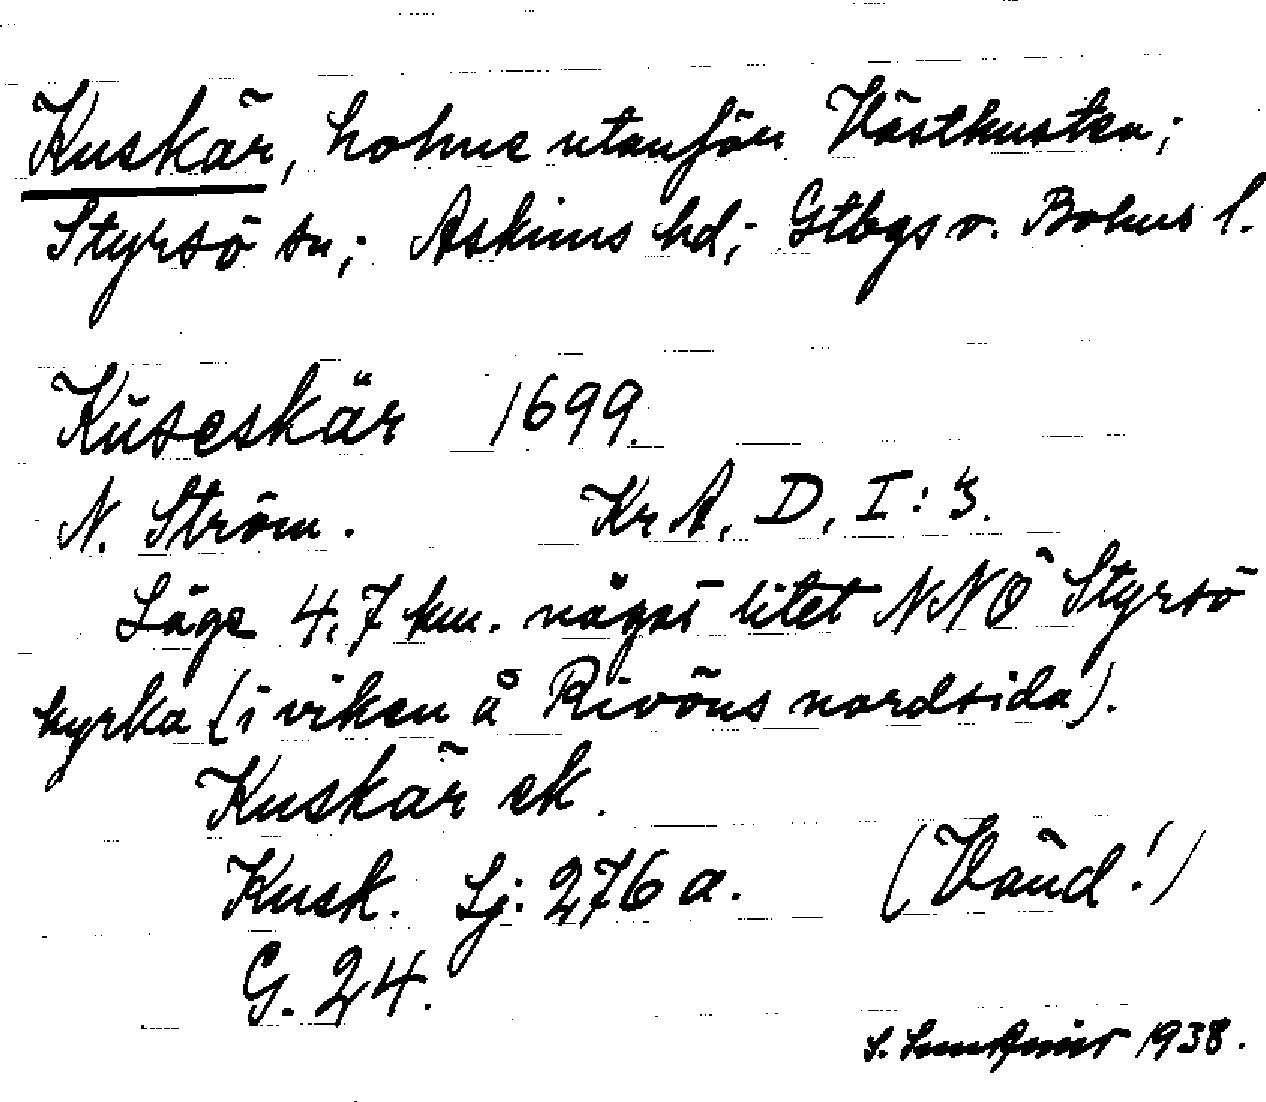 Kuskär, holme utanför Västkusten;
Styrsö sn; Askims hd; Gtbgs o. Bohus l.
Kūseskär 1699.
N. Ström. KrA, D, I: 3.
Läge 4,7 km. något litet NNÖ Styrsö
kyrka (i viken å Rivöns nordsida).
Kuskär ek.
Kusk. Sj: 276 a. (Vänd!)
G. 24.
S. 1938.